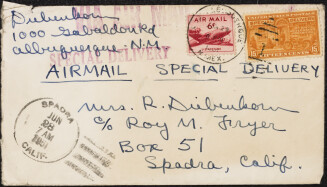 Diebenkorn
1000 Gabaldon Rd
Albuquerque N.M.
SPECIAL DELIVERY
AIR MAIL
6¢
AIRMAIL SPECIAL DELIVERY
SPADRA
JUN
28
7 AM
1951
CALIF.
Mrs. R. Diebenkorn
c/o Roy M. Fryer
Box 51
Spadra, Calif.